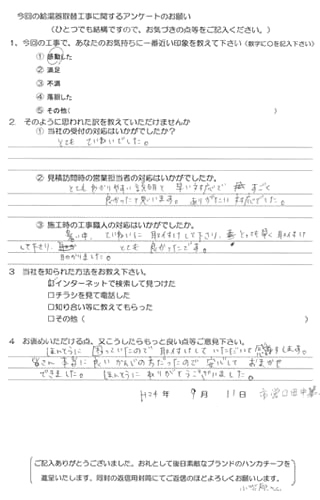 今回の給湯器取替工事に関するアンケートのお願い
(ひとつでも結構ですので、お気づきの点等をご記入ください。)
1、今回の工事で、あなたのお気持ちに一番近い印象を教えて下さい(数字に○を記入下さい)
① 感動した
② 満足
③ 不満
④ 落胆した
⑤ その他( )
2. そのように思われた訳を教えていただけませんか
① 当社の受付の対応はいかがでしたか?
とても ていねいでした。
② 見積訪問時の営業担当者の対応はいかがでしたか。
とてもわかりやすい説明で 早い対応で すごく
良かったと思います。ありがたい対応でした。
③ 施工時の工事職人の対応はいかがでしたか。
暑い中、ていねいに 取り付けして下さり、とっても早く取り付け
して下さり、 とても 良かったです。
助かりました。
3 当社を知られた方法をお教え下さい。
☑インターネットで検索して見つけた
□チラシを見て電話した
□知り合い等に教えてもらった
□その他( )
4 お褒めいただける点、又こうしたらもっと良い点等ご意見下さい。
ほんとうに 困っていたので 取り付けして いただいて 感謝します。
皆さん 本当に 良い かんじの方だったので 安心して おまかせ
できました。 ほんとうに ありがとうございました。
H24 年 9 月 11 日
ご記入ありがとうございました。お礼として後日素敵なブランドのハンカチーフを
進呈いたします。同封の返信用封筒にてご返信のほどよろしくお願いします。